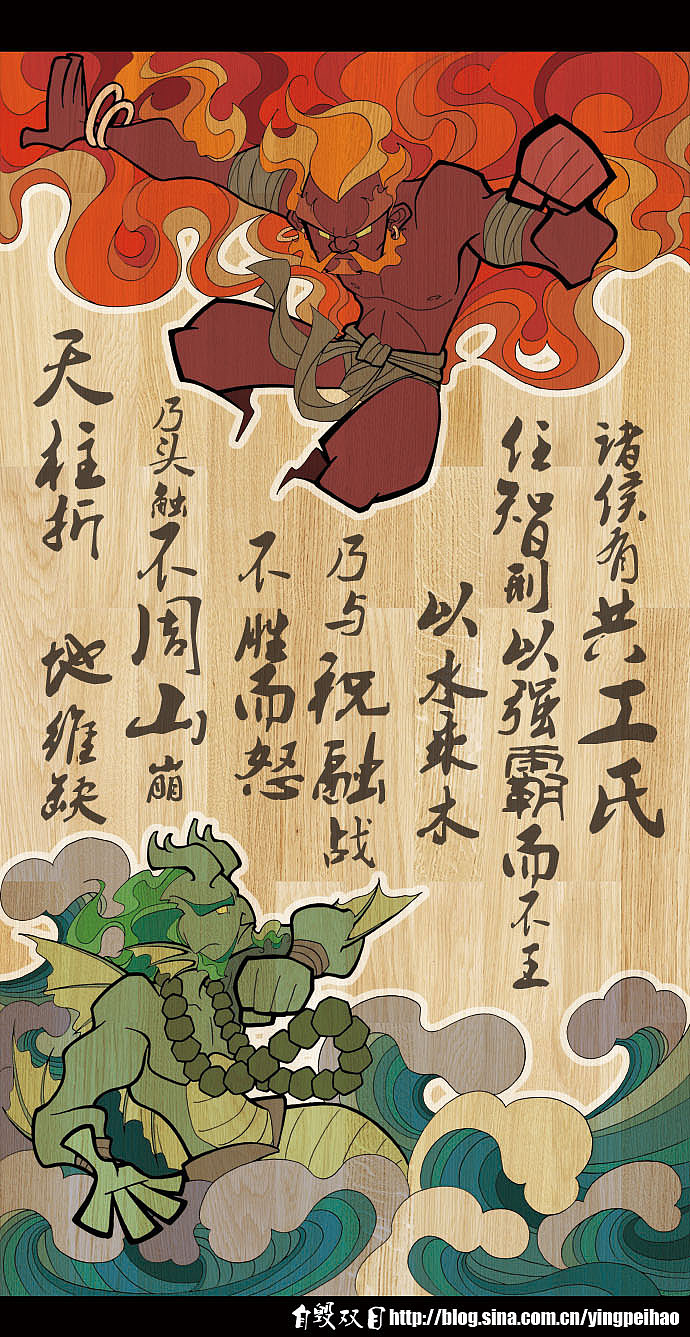 诸侯有共工氏
任智刑以强霸而不王
以水乘木
乃与祝融战
不胜而怒
乃头触不周山崩
天柱折 地维缺
自毁双目 http://blog.sina.com.cn/yingpeihao